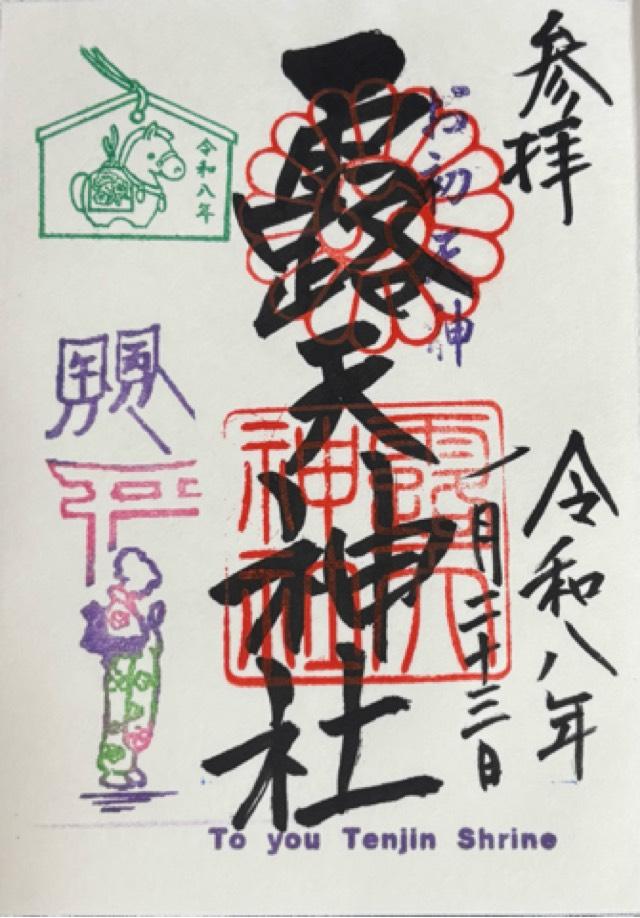 参拝
令和八年
一月二十三日
お初天神
露天神社
露天
神社
令和八年
To you Tenjin Shrine